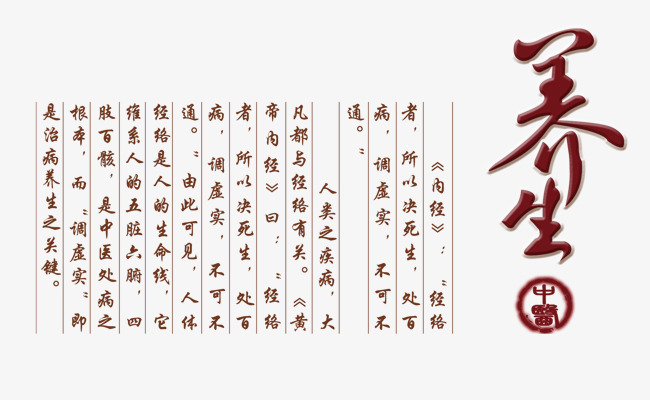 养生
中醫
《内经》:“经络
者,所以决死生,处百
病,调虚实,不可不
通。”
人类之疾病,大
凡都与经络有关。《黄
帝内经》曰:“经络
者,所以决死生,处百
病,调虚实,不可不
通。”由此可见,人体
经络是人的生命线,它
维系人的五脏六腑,四
肢百骸,是中医处病之
根本,而“调虚实”即
是治病养生之关键。